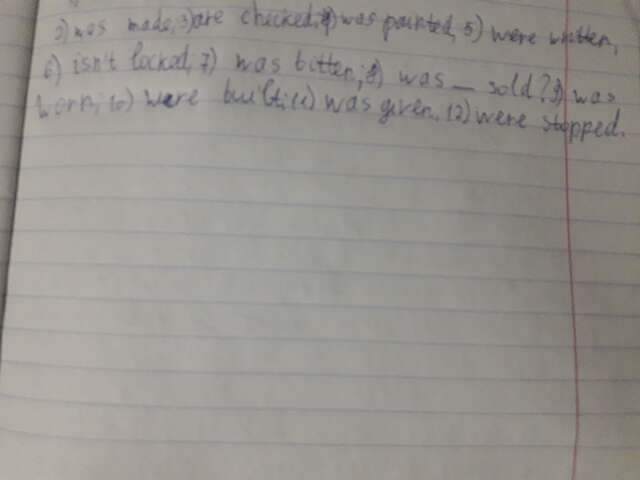 2) was made, 3) are checked, 4) was painted, 5) were written,
6) isn't locked, 7) was bitten, 8) was _ sold? 9) was
worn, 10) were built, 11) was given, 12) were stopped.